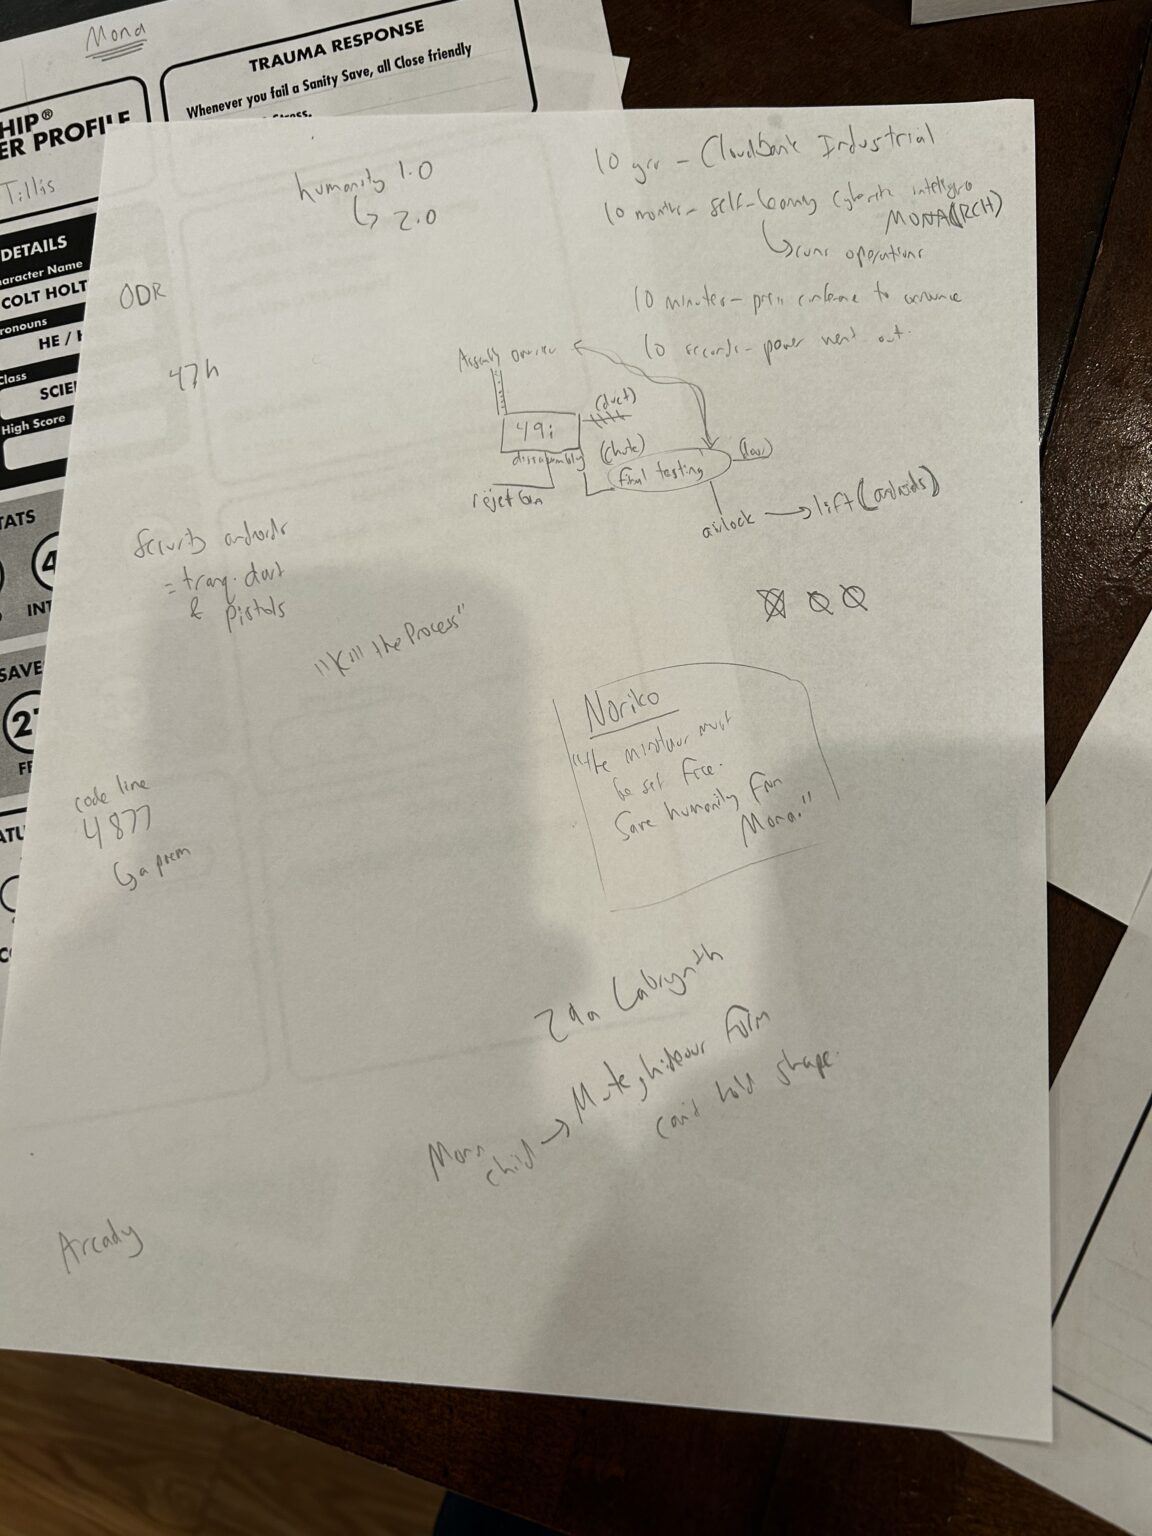 Mona
TRAUMA RESPONSE
Whenever you fail a Sanity Save, all Close friendly
HIP®
ER PROFILE
Tillis
DETAILS
haracter Name
COLT HOLT
ronouns
HE / H
Class
SCIE
High Score
TATS
4
INT
SAVE
2
FE
ATU
CO
humanity 1.0
↳ 2.0
10 yrr - Cloudbank Industrial
10 months - self-learning
MONA(RCH)
↳ runs operations
10 minutes - press conference to announce
10 seconds - power went out.
ODR
47h
Assembly
(duct)
49i
disassembly
(chute)
final testing
(door)
airlock → lift (androids)
Security androids
= tranq. dart
& pistols
"Kill the Process"
Noriko
"the minotaur must
be set free.
Save humanity from
Mona."
code line
4877
↳ a poem
Labrynth
Mona child → Mute, hideous form
can't hold shape.
Arcady